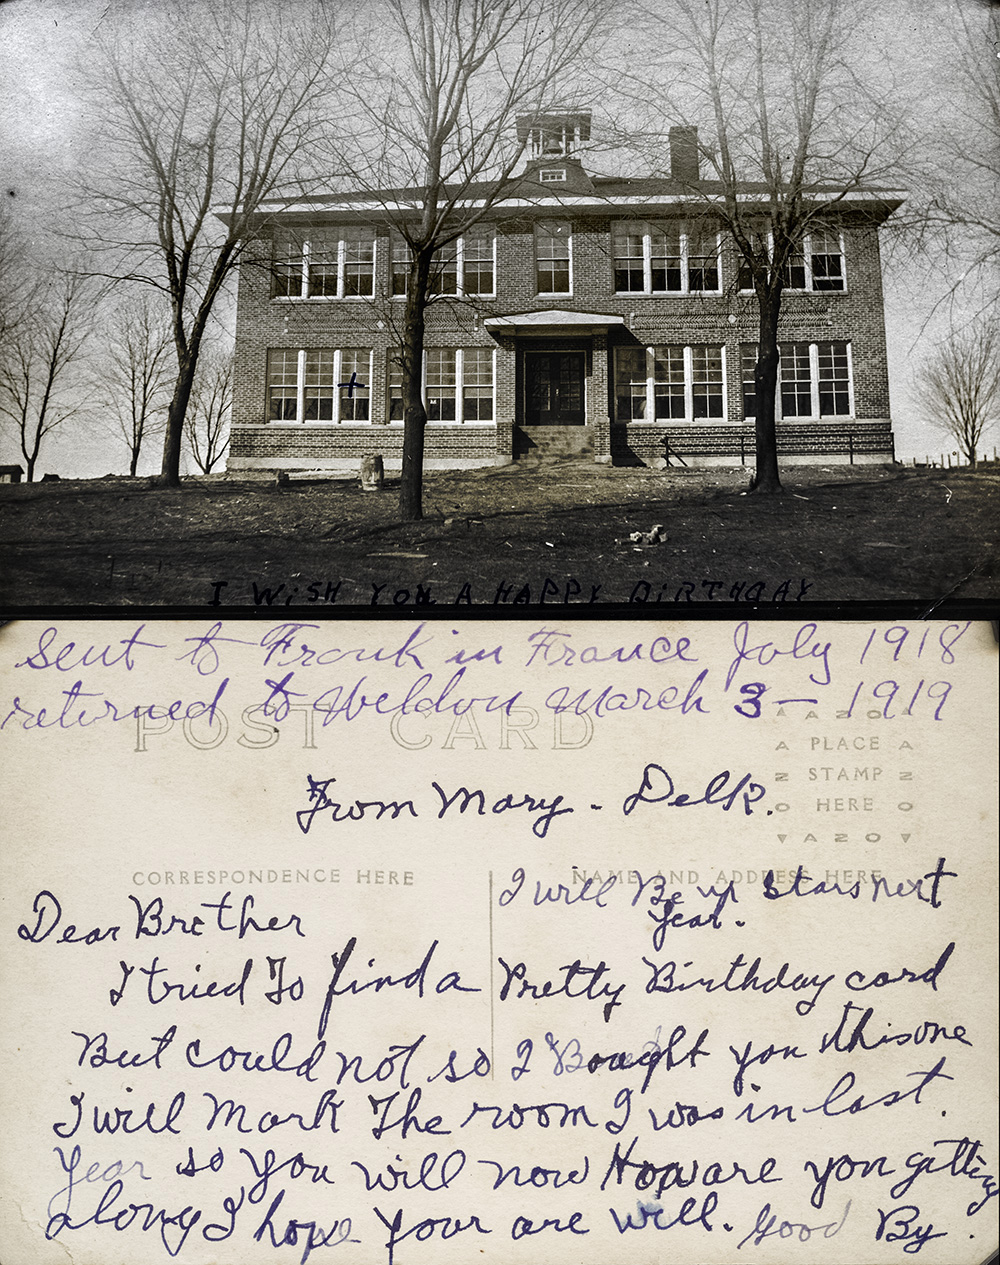 I WiSH YOU A HAPPY BIRTHDAY
Sent to Frank in France July 1918
returned to Weldon March 3 - 1919
POST CARD
AZO
PLACE
STAMP
HERE
AZO
From Mary - Delk.
CORRESPONDENCE HERE
NAME AND ADDRESS HERE
I will Be up stars next
Year.
Dear Brother
I tried To find a Pretty Birthday card
But could not so I Bought you this one
I will Mark The room I was in last.
Year so you will now How are you gitting
along I hope your are will. Good By.